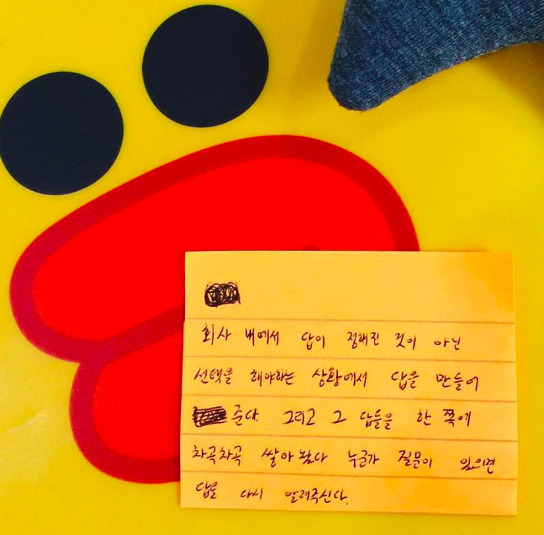 회사 내에서 답이 정해진 것이 아닌
선택을 해야하는 상황에서 답을 만들어
준다. 그리고 그 답들을 한 쪽에
차곡차곡 쌓아 놨다 누군가 질문이 있으면
답을 다시 알려주신다.